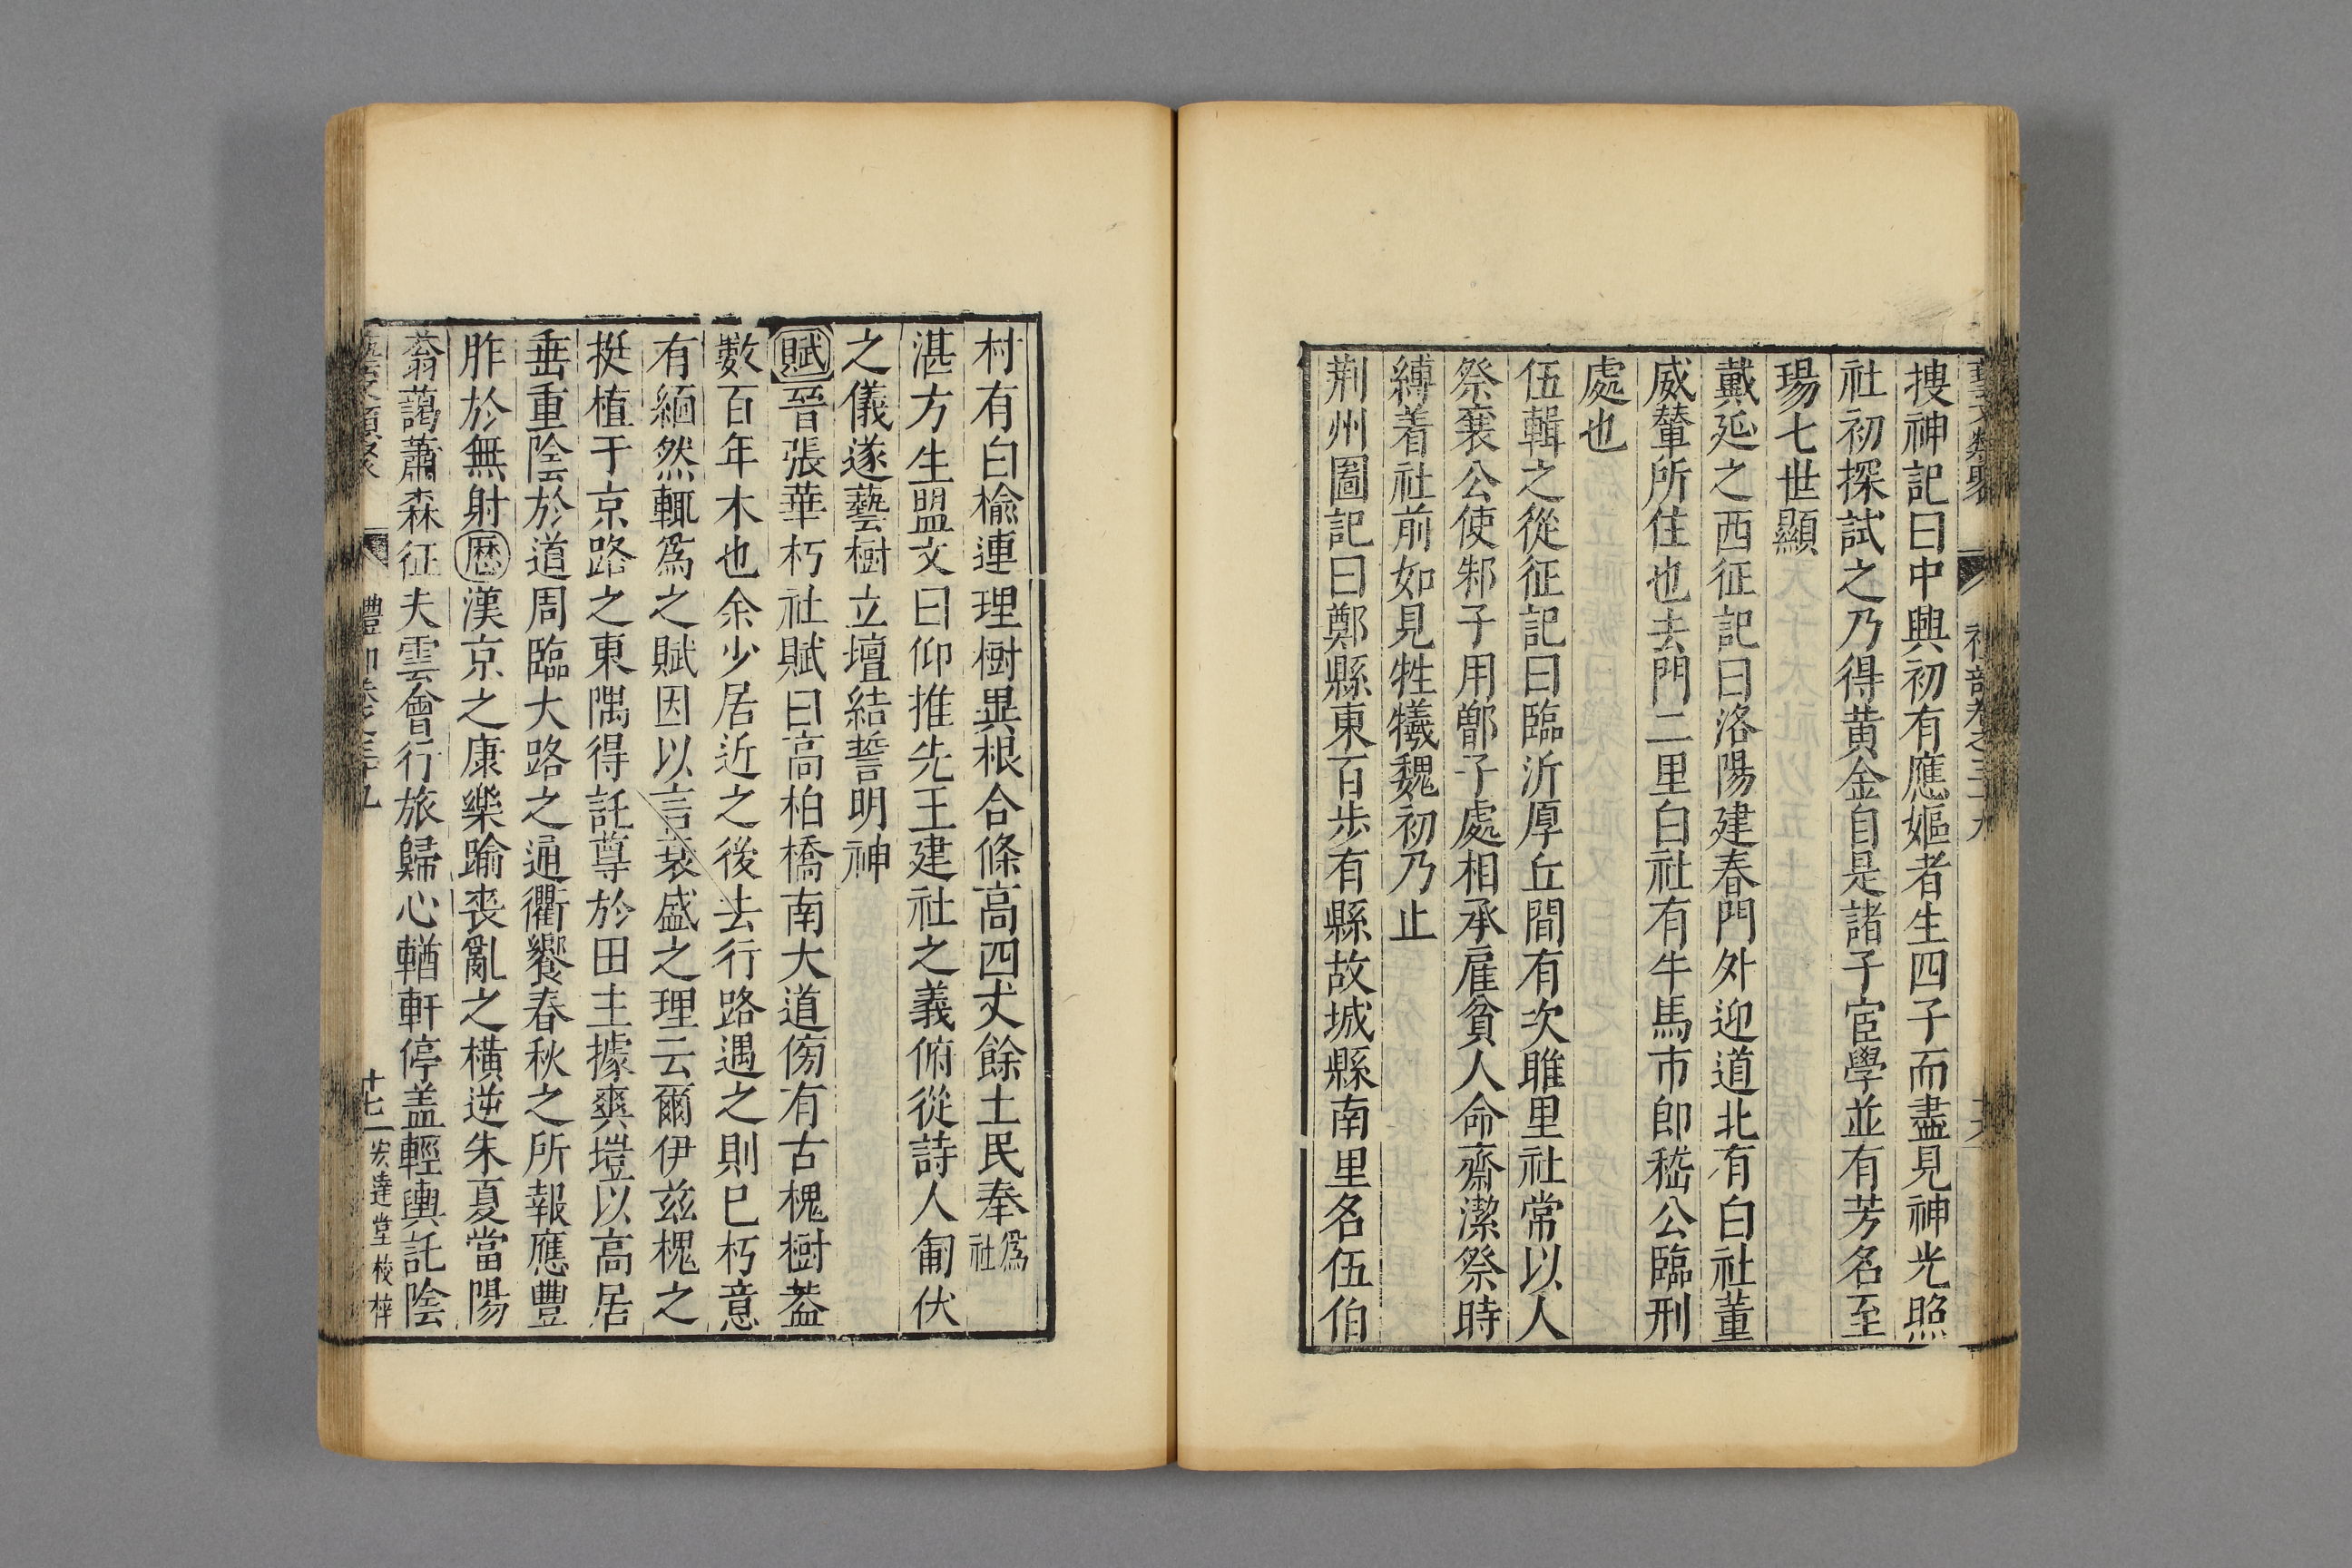 搜神記曰中興初有應嫗者生四子而盡見神光照
社初探試之乃得黄金自是諸子宦學並有芳名至
瑒七世顯
戴延之西征記曰洛陽建春門外迎道北有白社董
威輦所住也去門二里白社有牛馬市卽嵇公臨刑
處也
伍輯之從征記曰臨沂厚丘間有次睢里社常以人
祭襄公使邾子用鄫子處相承雇貧人命齋潔祭時
縛着社前如見牲犧魏初乃止
荆州圖記曰鄭縣東百步有縣故城縣南里名伍伯
村有白榆連理樹異根合條高四丈餘土民奉爲社
湛方生盟文曰仰推先王建社之義俯從詩人匍伏
之儀遂藝樹立壇結誓明神
賦晉張華朽社賦曰高柏橋南大道傍有古槐樹葢
數百年木也余少居近之後去行路遇之則已朽意
有緬然輒爲之賦因以言衰盛之理云爾伊兹槐之
挺植于京路之東隅得託尊於田主據爽塏以高居
垂重陰於道周臨大路之通衢饗春秋之所報應豐
胙於無射歴漢京之康樂踰喪亂之橫逆朱夏當陽
蓊藹蕭森征夫雲會行旅歸心輶軒停盖輕輿託陰
十七
宏達堂校梓